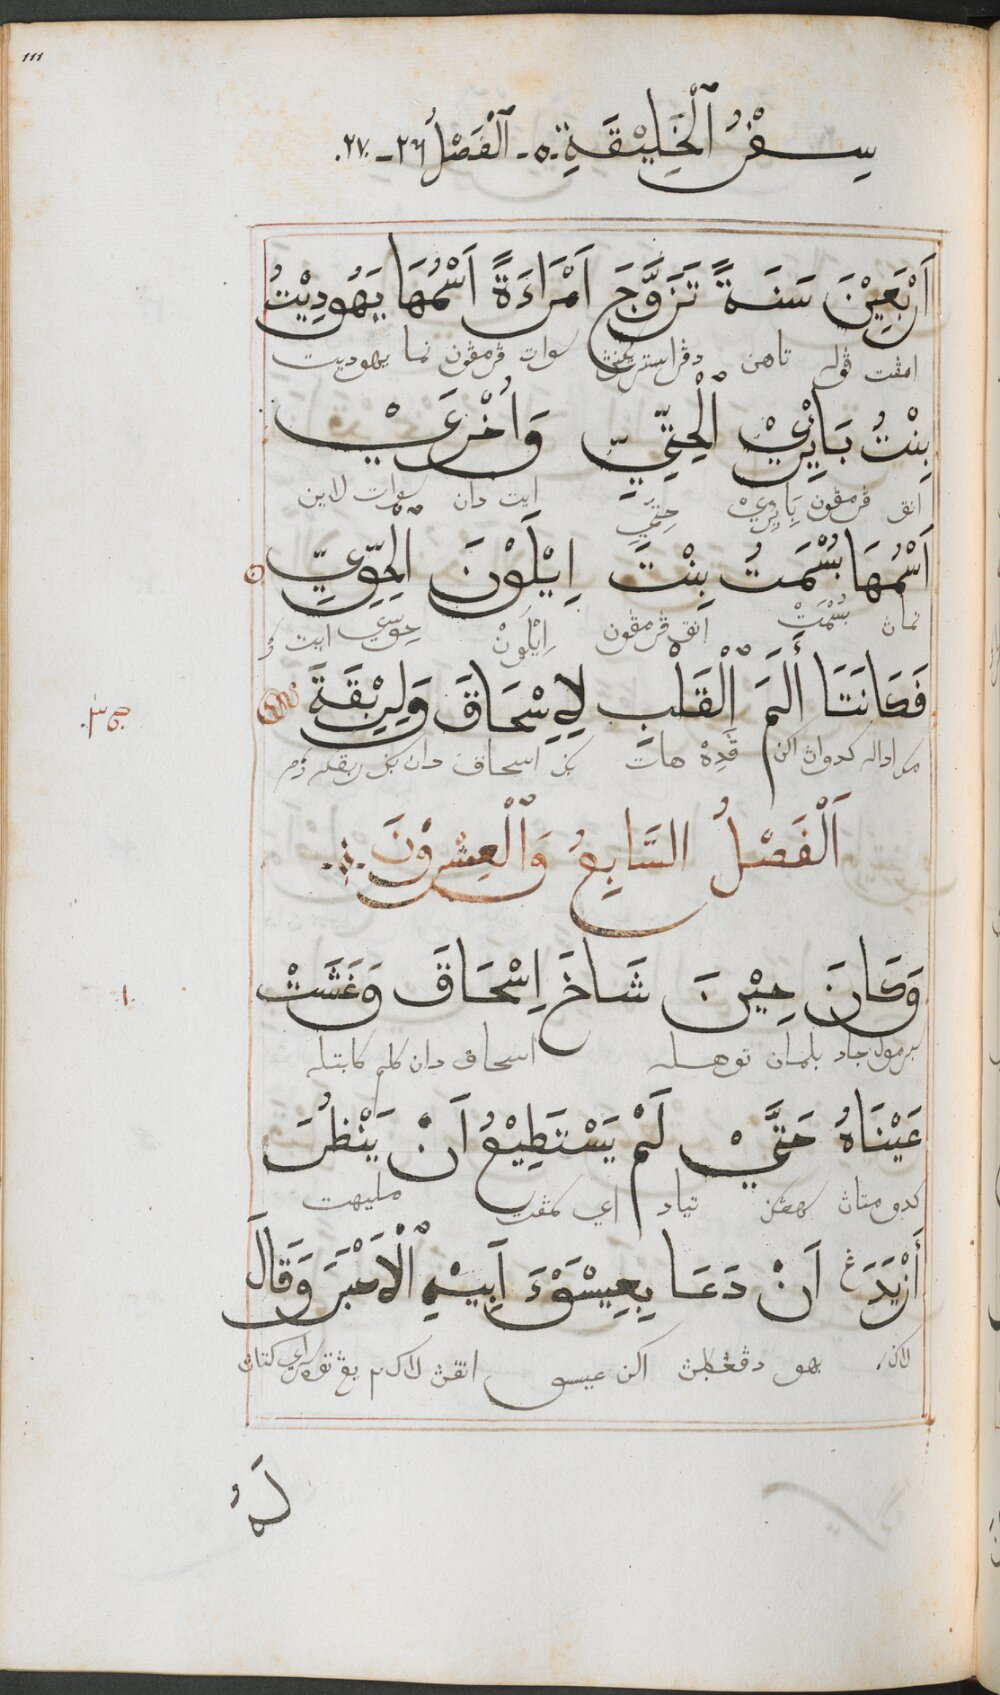 سِفْرُ ٱلْخَلِيْقَةِ ٥- اَلْفَصْلُ ٢٦ - ٢٧.
اَرْبَعِيْنَ سَنَةً تَزَوَّجَ اَمْرَاءَةً اَسْمُهَا يَهُودِيْتُ
امڤت ڤوله تاهن دڤراستريكنڽ سوات ڤرمڤون نما يهوديت
بِنْتُ بَائِرِيْ الْحِتِّيِّ وَاُخْرَيْ
انق ڤرمڤون بَائِرِيْ حِتِّيِّ ايت دان سوات لاين
اَسْمُهَا بُسْمَتُ بِنْتَ اِيْلَوْنَ الْحِوِّيِّ
نماڽ بُسْمَتْ انق ڤرمڤون اِيْلَوْنْ حِوِّيِّ ايت
فَكَانَتَا أَلَمَ ٱلْقَلْبِ لِاِسْحَاقَ وَلِرِبْقَةَ
مك اداله كدواڽ اكن ڤَدِهْ هات كن اسحاق دان كن ربقه
٣٥.
اَلْفَصْلُ السَّابِعُ وَالْعِشْرُوْنَ
وَكَانَ حِيْنَ شَاخَ اِسْحَاقَ وَغَشَتْ
.١.
برمول جاد بلمان توهله اسحاق دان كلم كابتله
عَيْنَاهُ حَتَّيْ لَمْ يَسْتَطِيْعُ اَنْ يَنْظُرَ
كدو متاڽ سهڠكن تياد اي كمڤت مليهت
أَزْيَدَ اَنْ دَعَا بِعِيْسَوْءَ اَبِيْهِ الْاَكْبَرَ وَقَالَ
لاكي بهو دڤڠڬلڽ اكن عيسو انقڽ لاكي٢ يڠ تو سراي كتاڽ
لَهُ